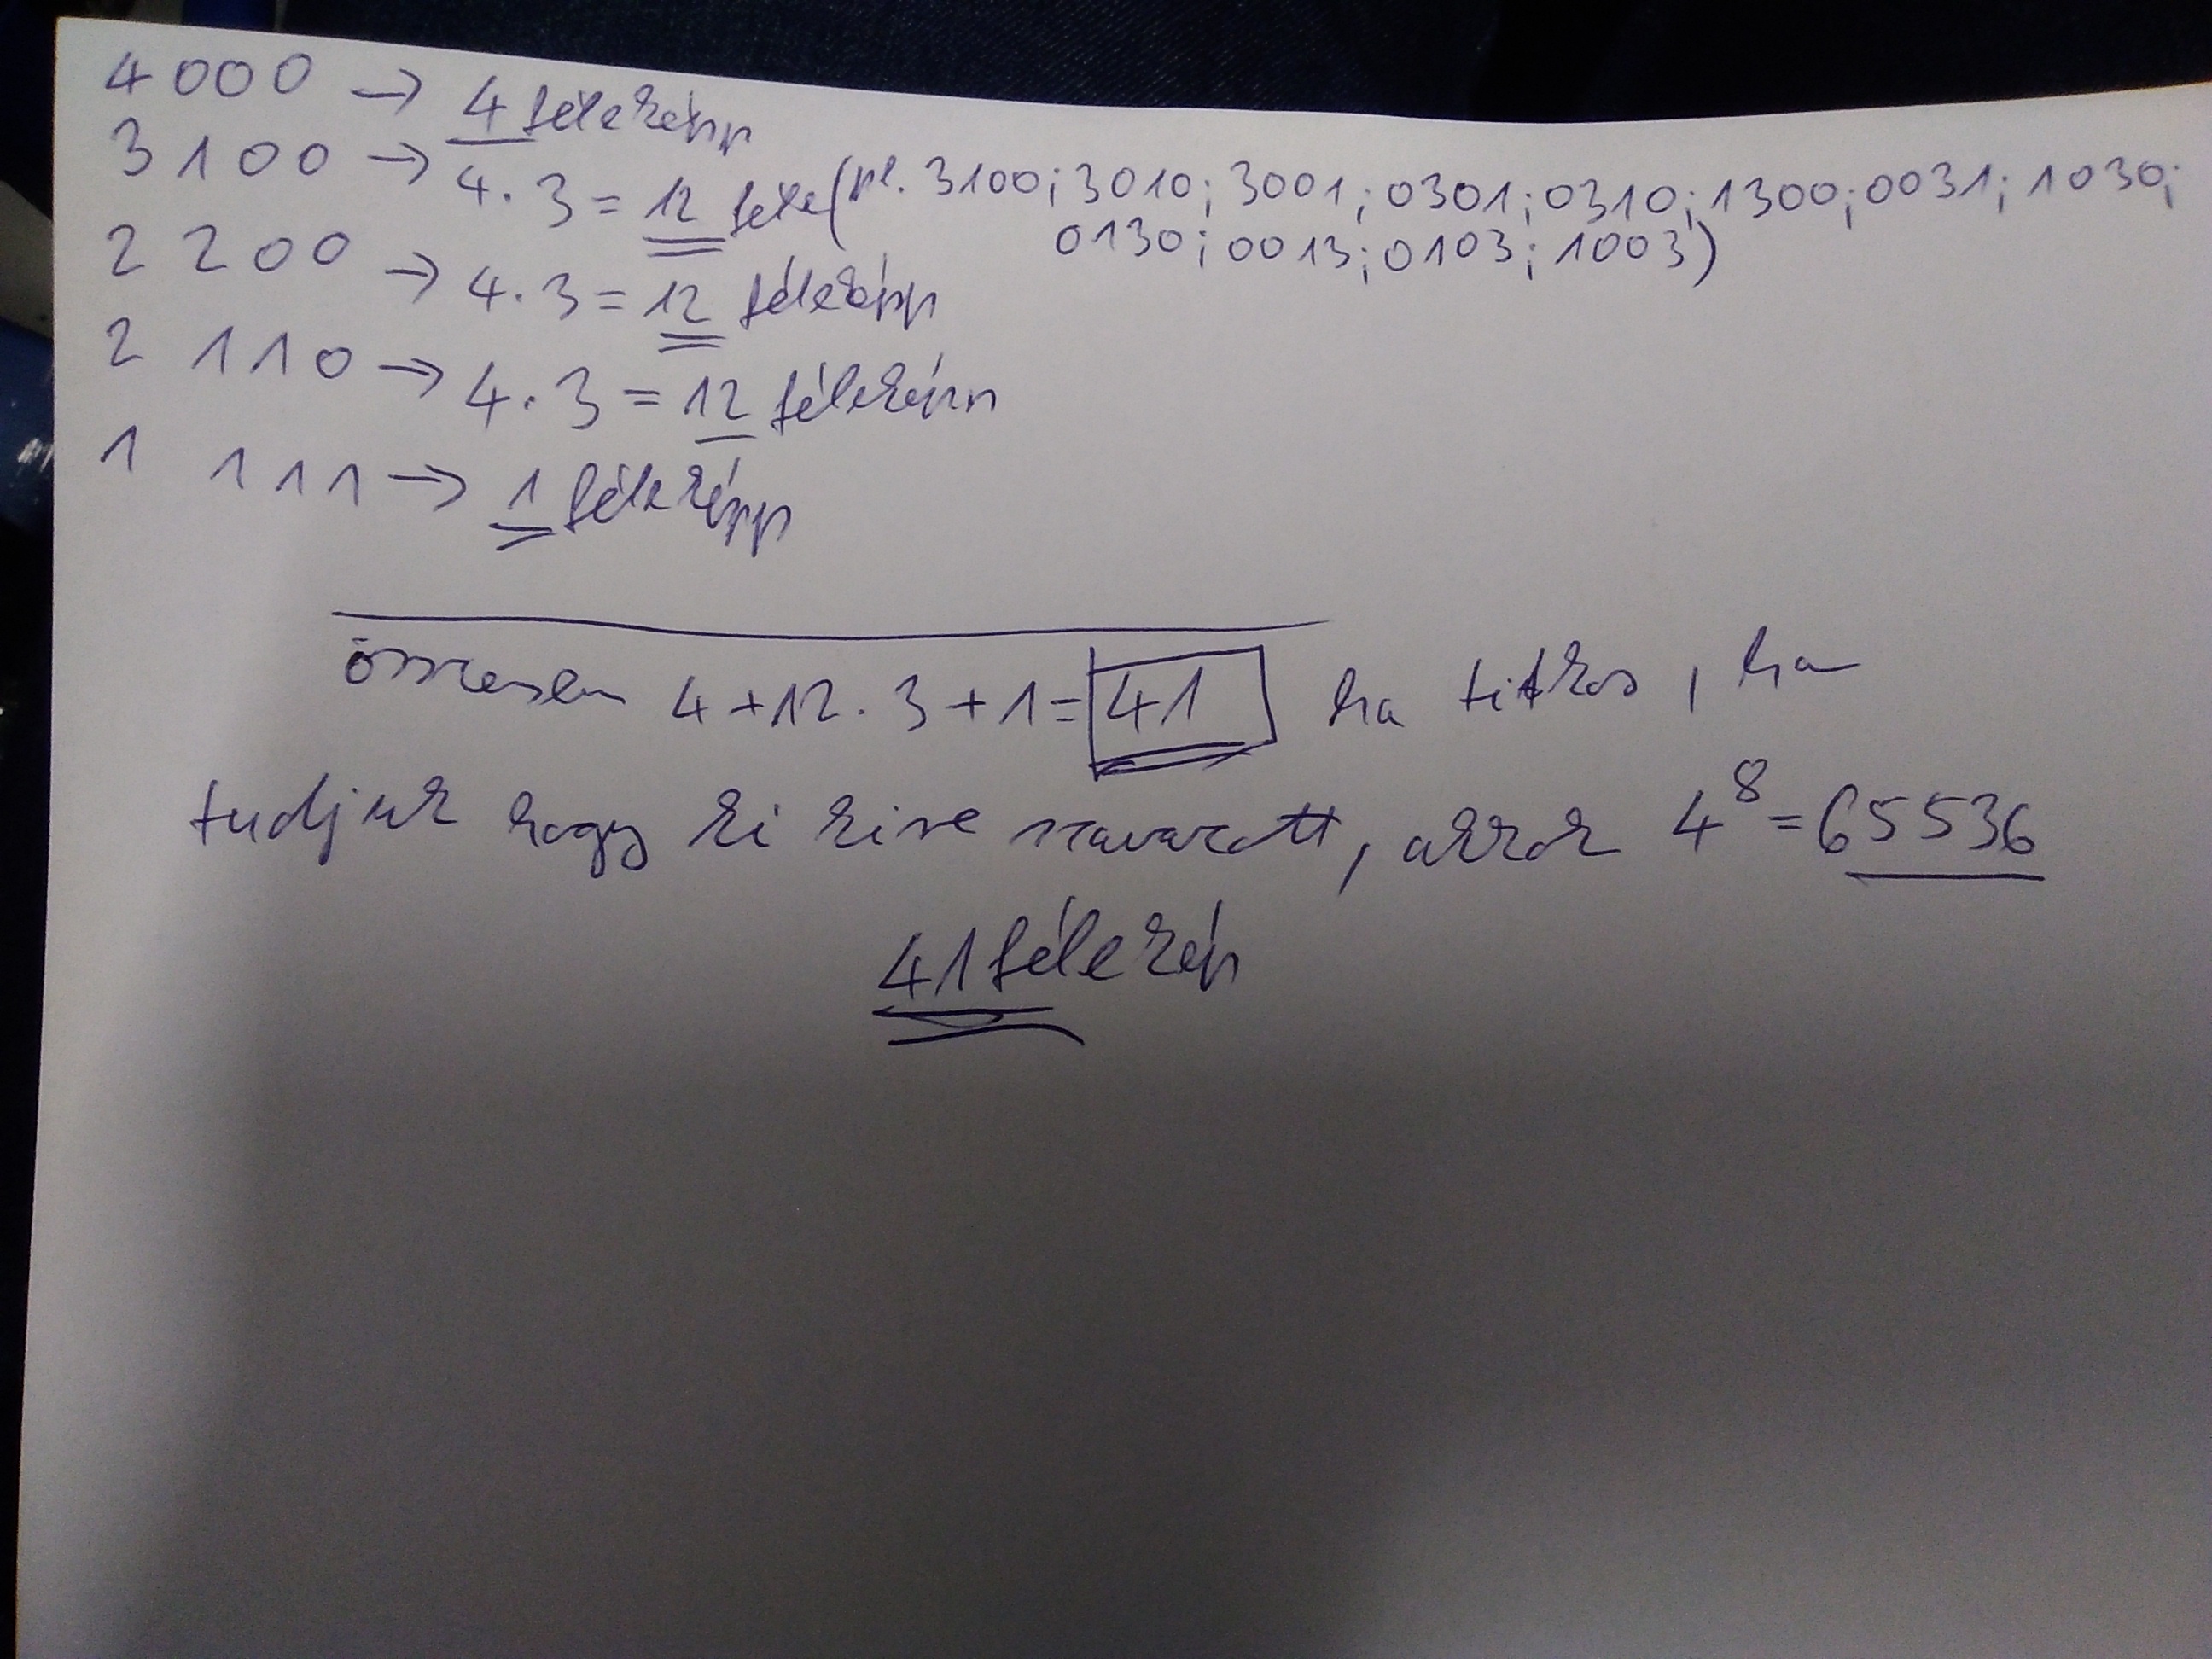 4000 → 4 féleképp
3100 → 4·3=12 féle (pl. 3100; 3010; 3001; 0301; 0310; 1300; 0031; 1030;
0130; 0013; 0103; 1003)
2200 → 4·3=12 féleképp
2110 → 4·3=12 féleképp
1 111 → 1 féleképp
összesen 4+12·3+1=41 ha titkos, ha
tudjuk hogy ki kire szavazott, akkor 4⁸=65536
41 féleкép